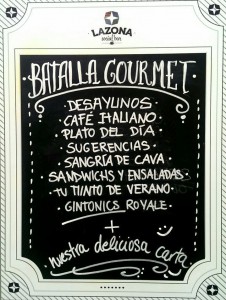 LAZONA
social bar
BATALLA GOURMET
· DESAYUNOS ·
· CAFÉ ITALIANO ·
· PLATO DEL DÍA ·
· SUGERENCIAS ·
· SANGRÍA DE CAVA ·
· SANDWICHS Y ENSALADAS ·
· TU TINTO DE VERANO ·
· GINTONICS ROYALE ·
+
nuestra deliciosa carta